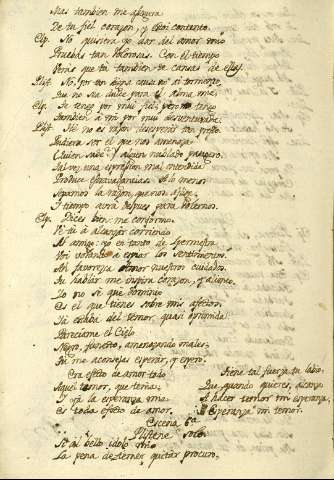 Mas tambien me asegura
De tu fiel corazon, y estoi contento.
Elp. No quisiera yo dar del amor mio
Pruebas tan dolorosas. Con el tiempo
Veras que tu tambien te cansas de ellas.
Plist. No, por tan digna causa no ai tormento
Que no sea dulce para el alma mia.
Elp. Te tengo por mui fiel; pero me tengo
Tambien à mi por mui desventurada.
Plist. No es razon desesperar tan presto.
Pudiera ser el que nos amenaza
Quien sabe si alguien hablado pasagero
Tal vez una expresion mal entendida
Produce extravagancias. A lo menor
Sepamos la razon, que nos aflige,
Y tiempo avrà despues para dolernos.
Elp. Dices bien me conformo.
Ve tù à alcanzar corriendo
Al amigo: yo en tanto de
Voi volando a espiar los sentimientos.
Ah favorezca amor nuestros cuidados.
Tu hablar me inspira corazon, y aliento.
Yo no sè què dominio
Es el que tienes sobre mis afectos.
Yà estaba del temor quasi oprimida:
Pareciame el Cielo
Negro, funesto, amenazando males,
Tu me aconsejas esperar, y espero.
Era efecto de amor todo
Aquel temor, que tenia,
Y oy la esperanza mia
Es toda efecto de amor.
Tiene tal fuerza tu labio,
Que quando quieres, alcanza
A hacer temor mi esperanza,
Esperanza mi temor.
Escena 6ª
Plistene solo.
Si al bello idolo mio
La pena de temer quitar procuro,